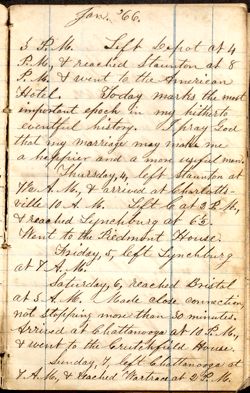 Jan. '66.
3 P.M. Left Depot at 4
P.M., & reached Staunton at 8
P.M. & went to the American
Hotel. Today marks the most
important epoch in my hitherto
eventful history. I pray God
that my marriage may make me
a happier and a more useful man.
Thursday, 4, left Staunton at
A.M., & arrived at Charlotts-
ville 10 A.M. Left C at 3 P.M.,
& reached Lynchburg at
Went to the Piedmont House.
Friday, 5, left Lynchburg
at 7 A.M.
Saturday, 6, reached Bristol
at 5 A.M. Made close connection,
not stopping more than 30 minutes.
Arrived at Chattanooga at 10 P.M.,
& went to the Crutchfield House.
Sunday, 7, left Chattanooga at
7 A.M., & reached Wartrace at 2 P.M.